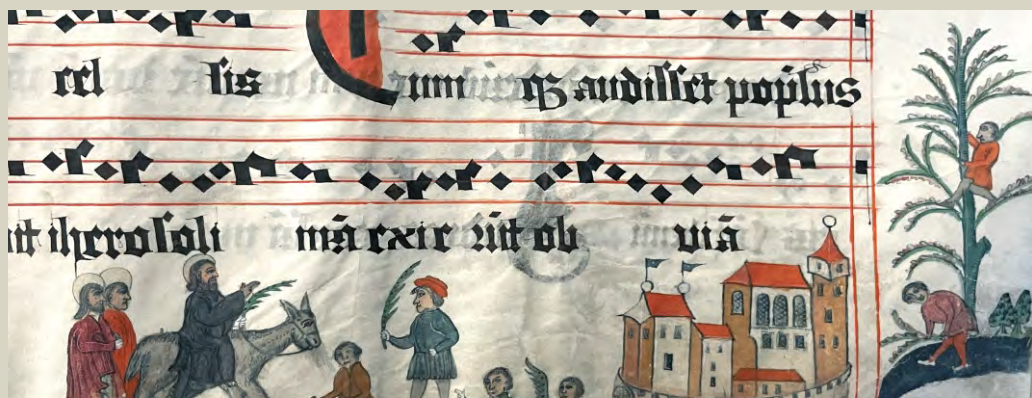 cel sis Cum q3 audisset popl̄us
it iherosoli mā exie rūt ob viā